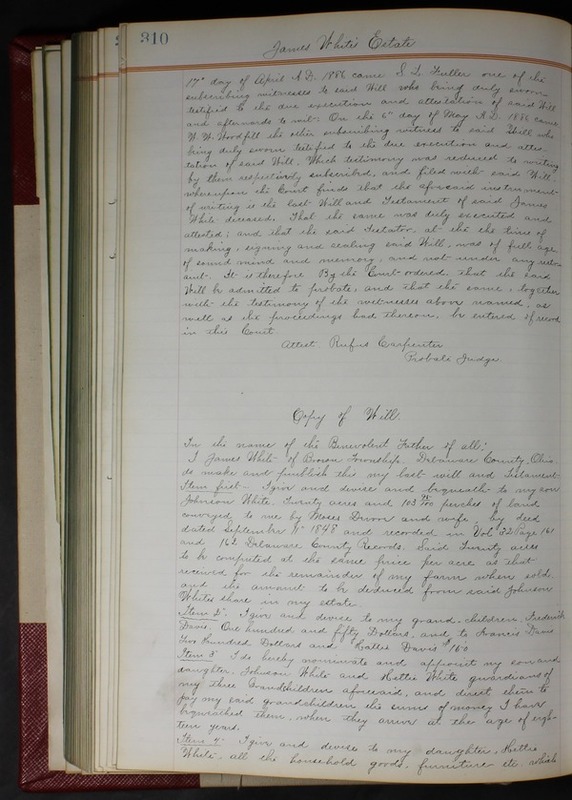 310
James White Estate
17" day of April A.D. 1886 came S. L. Fuller one of the
subscribing witnesses to said Will who being duly sworn
testified to the due execution and attestation of said Will
and afterwards to wit: On the 6" day of May A.D. 1886 came
W. W. Woodfill the other subscribing witness to said Will who
being duly sworn testified to the due execution and attes-
tation of said Will. Which testimony was reduced to writing
by them respectively subscribed, and filed with said Will.
whereupon the Court finds that the aforesaid instrument
of writing is the last Will and Testament of said James
White deceased. That the same was duly executed and
attested; and that the said Testator at the the time of
making, signing and sealing said Will, was of full age
of sound mind and memory, and not under any restr-
aint. It is therefore By the Court ordered, that the said
Will be admitted to probate, and that the same, together
with the testimony of the witnesses above named, as
well as the proceedings had thereon, be entered of record
in this Court
Attest. Rufus Carpenter
Probate Judge.
Copy of Will.
In the name of the Benevolent Father of all:
I James White of Township, Delaware County, Ohio.
do make and publish this my last will and Testament
Item first. I give and devise and bequeath to my son
Johnson White. Twenty acres and 103 perches of land
conveyed to me by Moses and wife, by deed
dated September 1848 and recorded in Vol 32 Page 161
and 162 Delaware County Records. Said Twenty acres
to be computed at the same price per acre as that
received for the remainder of my farm when sold.
and the amount to be deduced from said Johnson
Whites share in my estate.
Item 2" I give and devise to my grand-children, Frederick
Davis, One hundred and fifty Dollars, and to Francis Davis
Two Hundred Dollars and Hattie Davis $150
Item 3" I do hereby nominate and appoint my son and
daughter, Johnson White and Hattie White guardians of
my three Grandchildren aforesaid, and direct them to
pay my said grandchildren the sums of money I have
bequeathed them, when they arrive at the age of eigh-
teen years.
Item 4" I give and devise to my daughter, Hattie
White, all the household goods, furniture etc. which